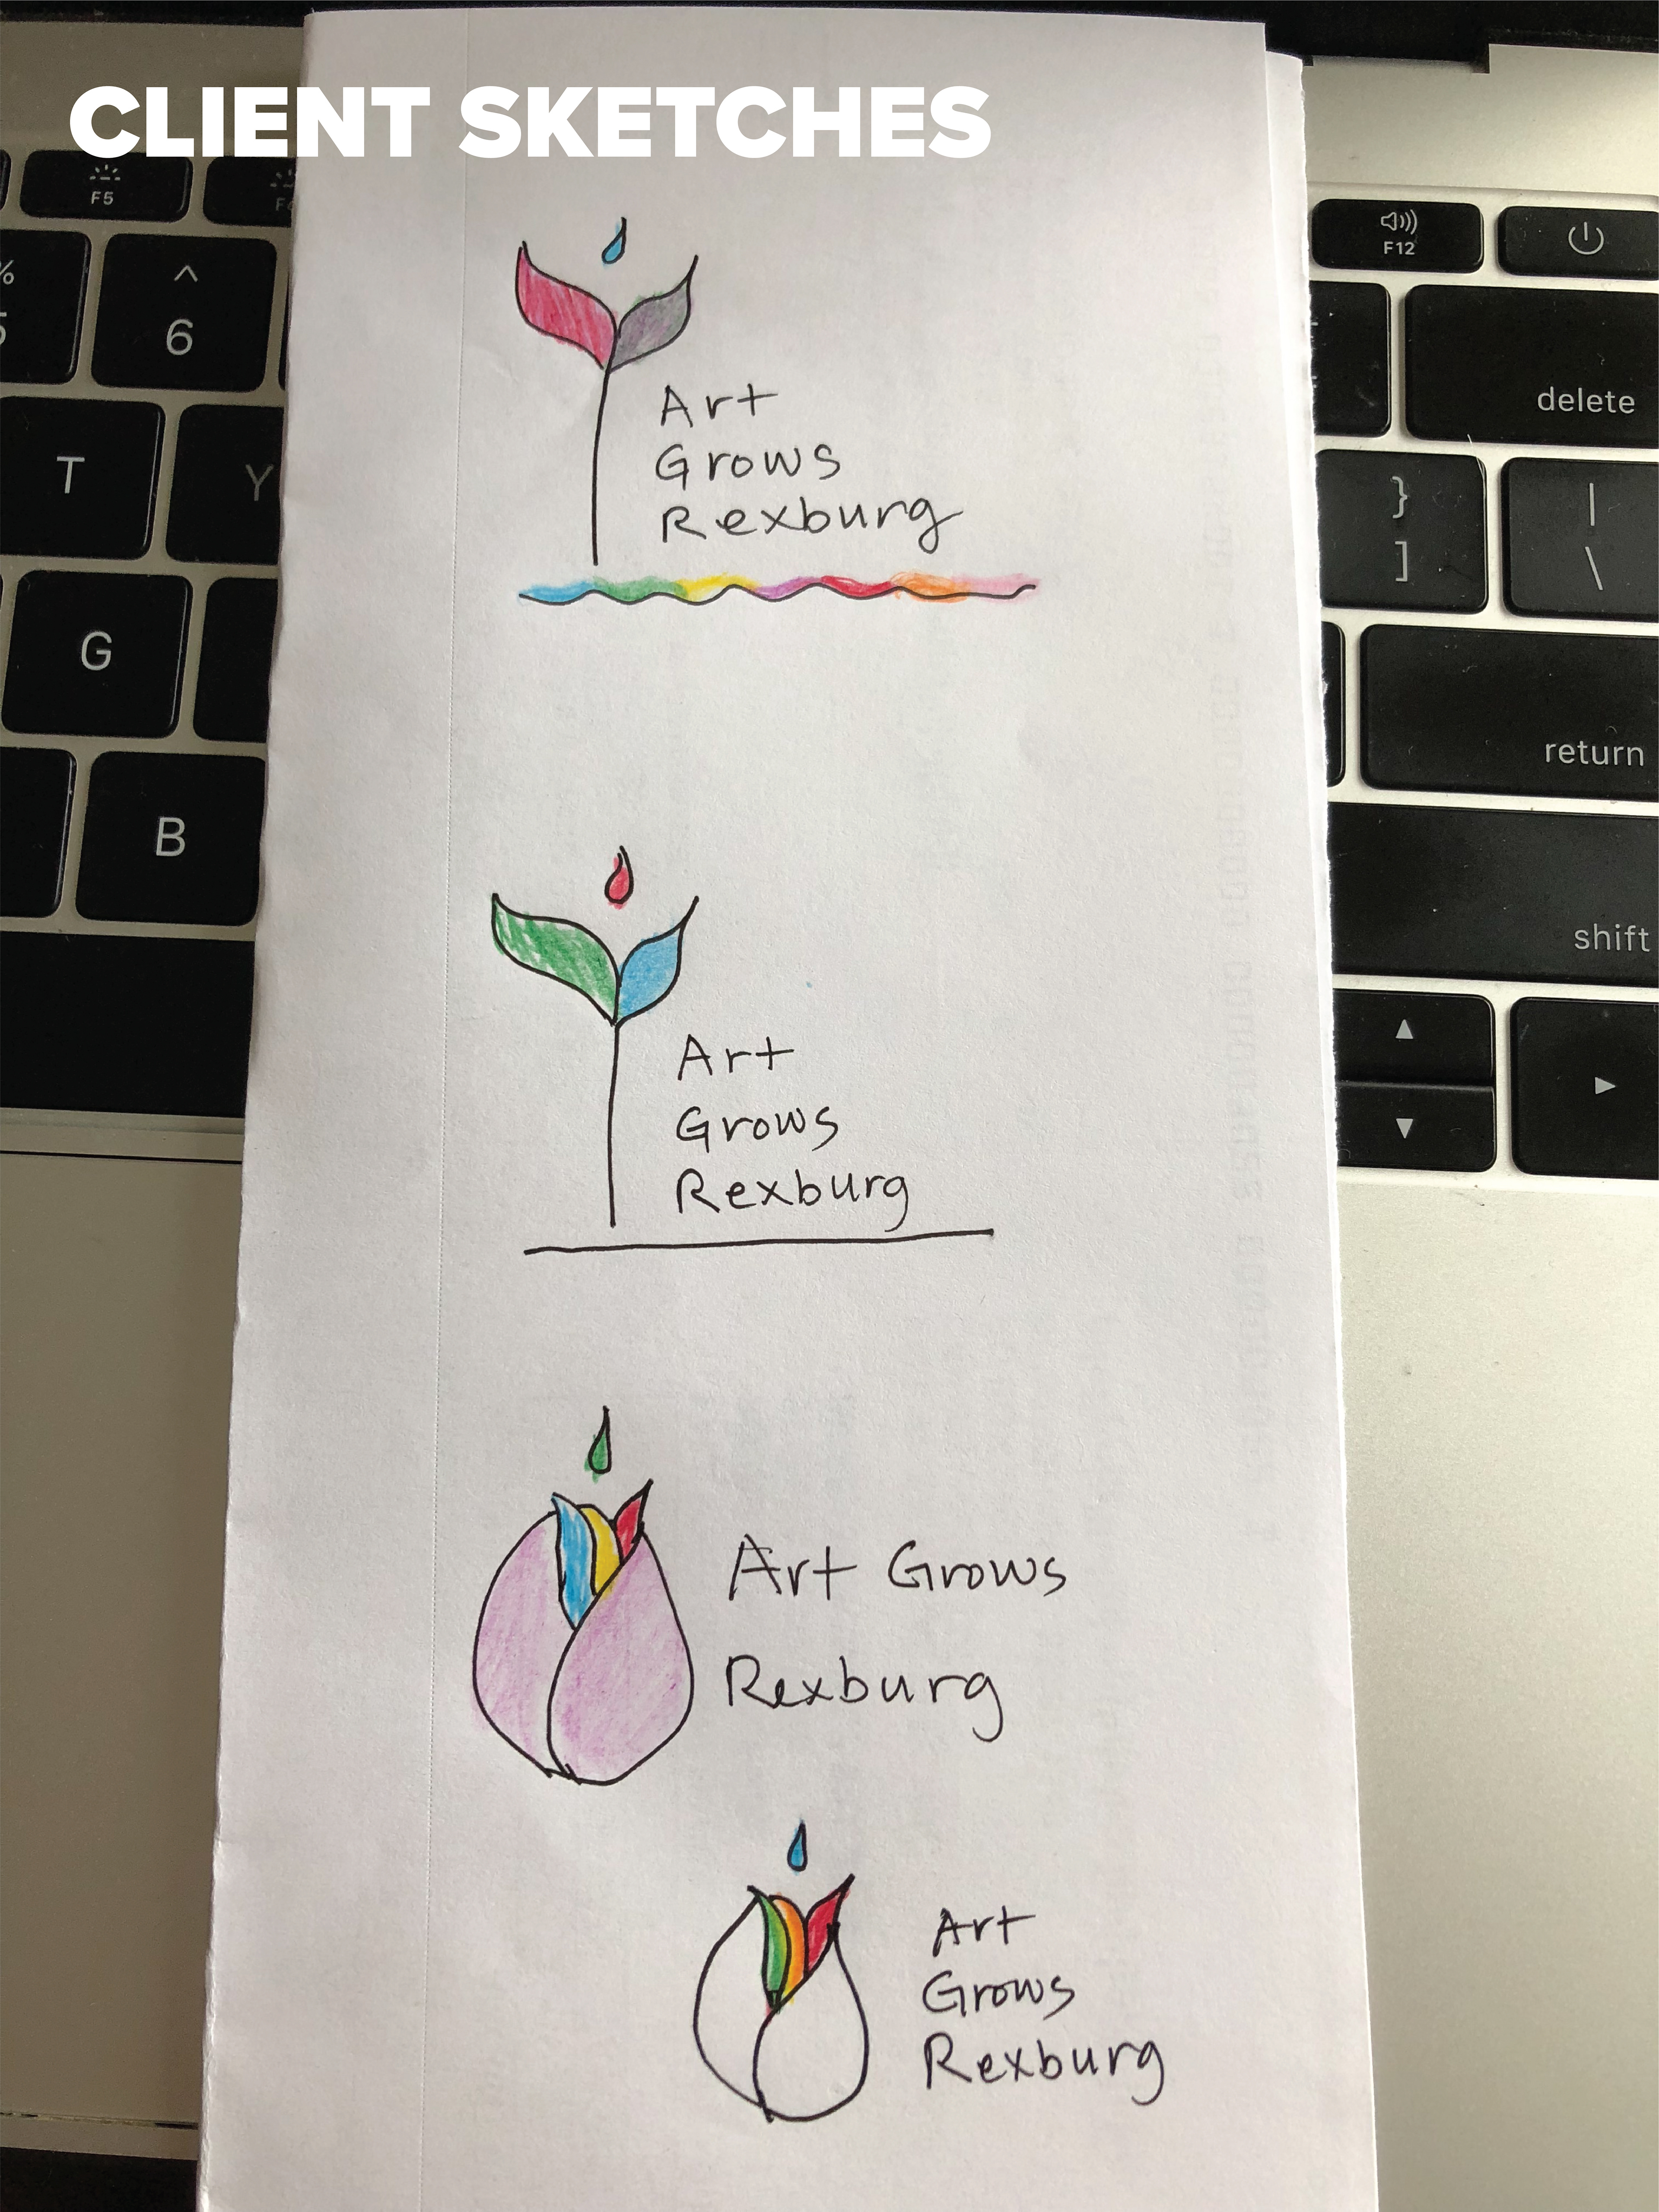 CLIENT SKETCHES
F5
F12
%
5
^
6
delete
T
Y
}
]
|
\
G
return
B
shift
Art
Grows
Rexburg
Art
Grows
Rexburg
Art Grows
Rexburg
Art
Grows
Rexburg